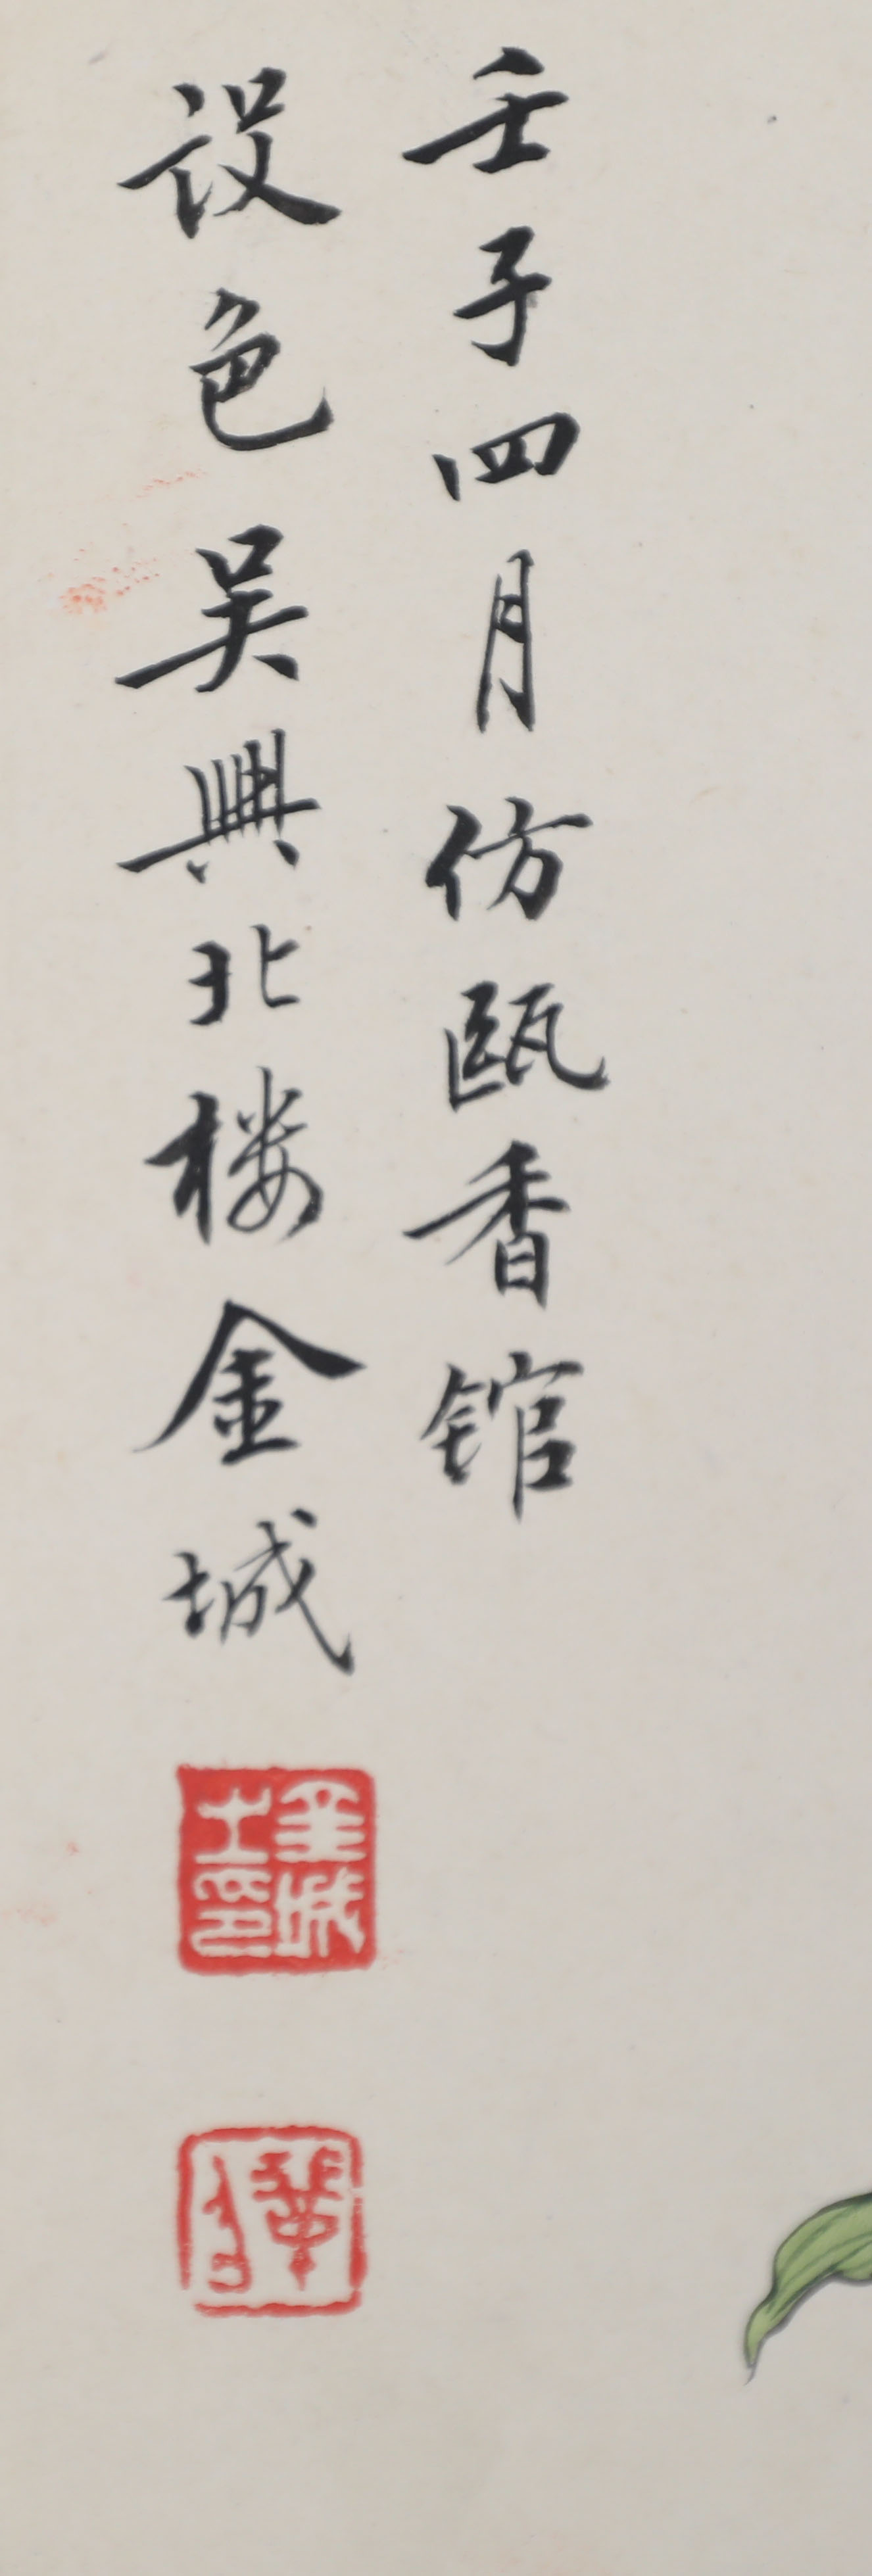 壬子四月仿甌香館
設色吳興北樓金城
金城
士印